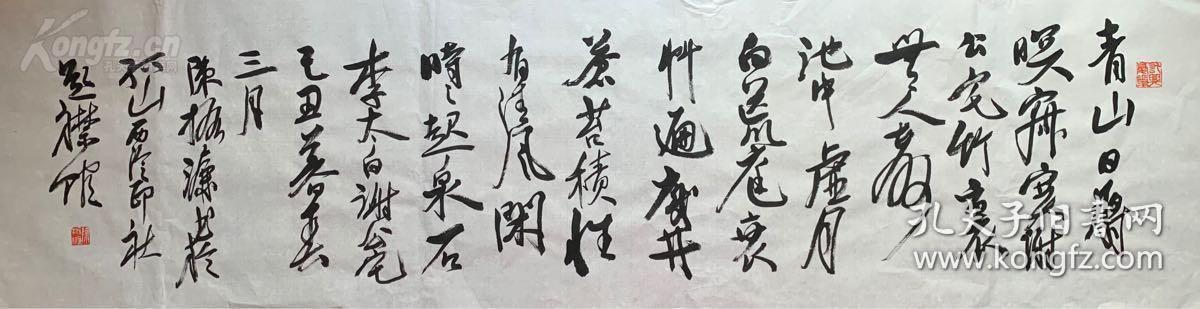 青山日將
暝寂寞謝
公宅竹裏
無人聲
池中虛月
白荒庭衰
艸遍廢井
蒼苔積惟
有清風閑
時〻起泉石
李太白謝公宅
己丑暮春
三月
陳振濂書於
孤山西泠印社
題襟館
Kongfz.cn
孔夫子旧书网
www.kongfz.com